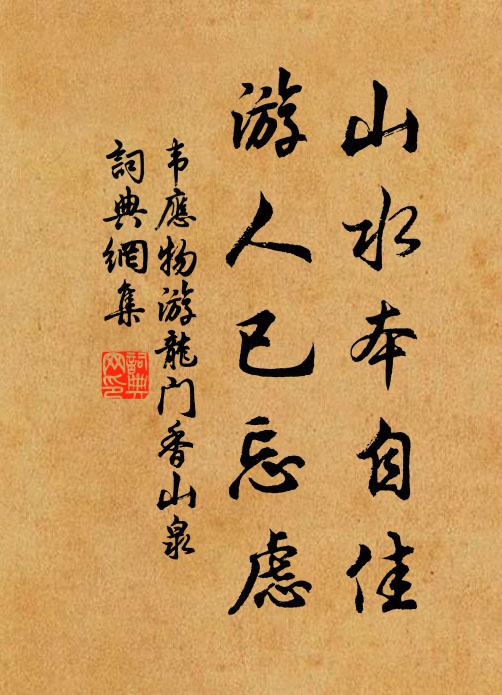 山水本自佳
游人已忘虑
韦應物游龍门香山泉
詞典網集
詞典网印